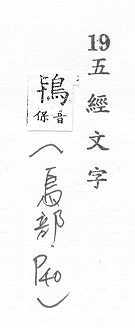 19五經文字
鴇音保(鳥部.P40)